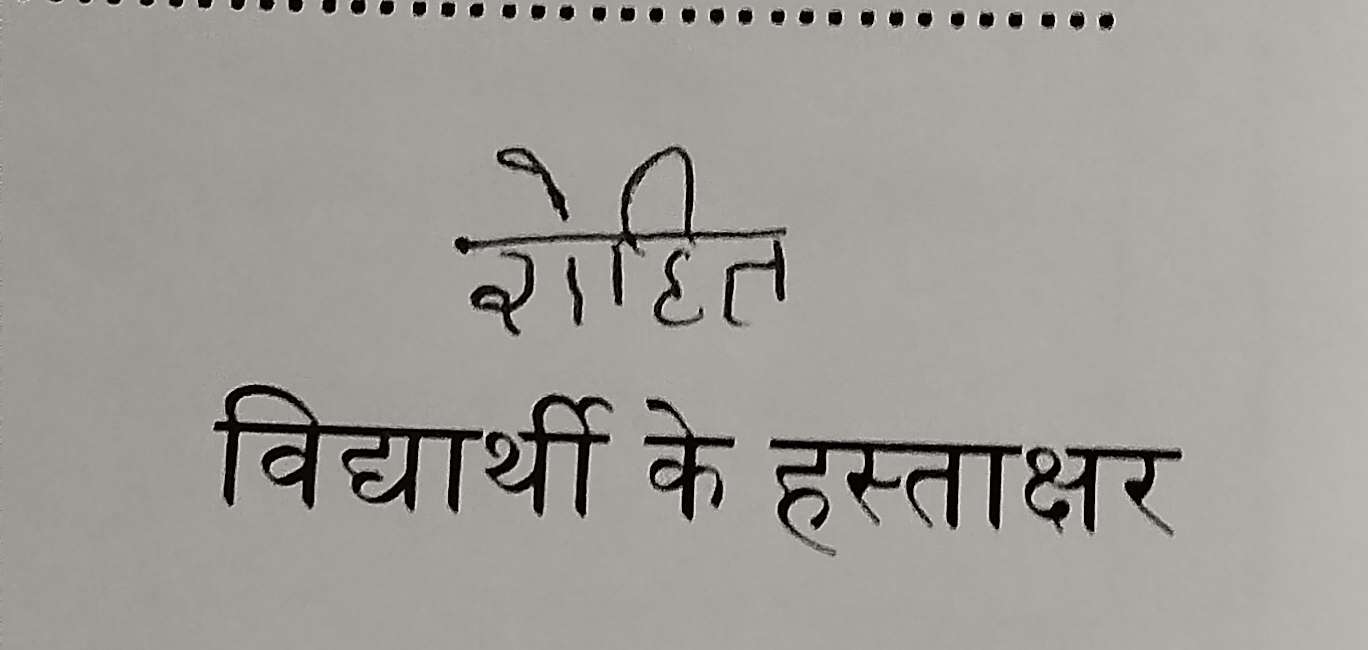 रोहित
विद्यार्थी के हस्ताक्षर